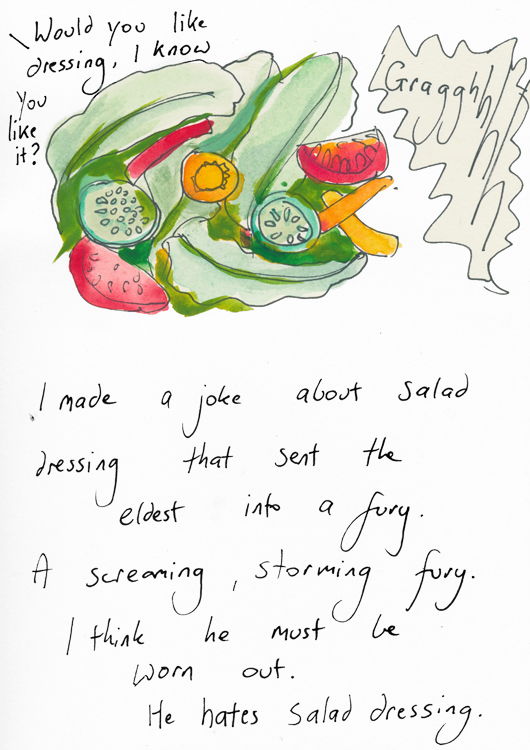 Would you like
dressing, I know
you
like
it?
Graggh
I made a joke about salad
dressing that sent the
eldest into a fury.
A screaming, storming fury.
I think he must be
worn out.
He hates salad dressing.